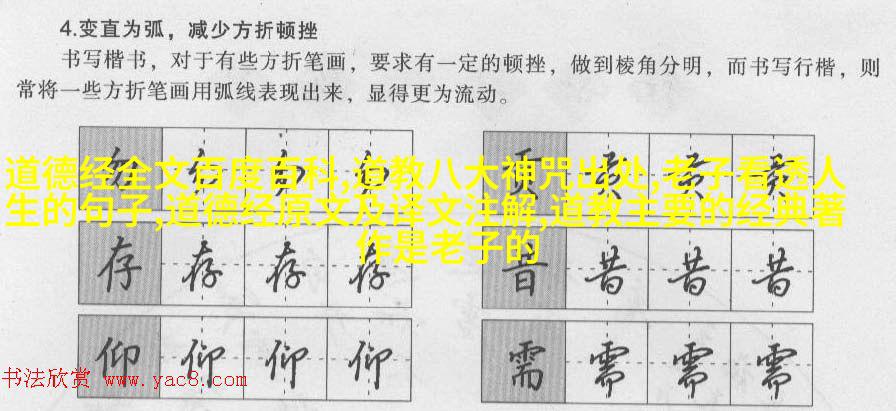 4.变直为弧，减少方折顿挫
书写楷书，对于有些方折笔画，要求有一定的顿挫，做到棱角分明，而书写行楷，则
常将一些方折笔画用弧线表现出来，显得更为流动。
道德经全文百度百科,道教八大神咒出处,老子看透人
生的句子,道德经原文及译文注解,道教主要的经典著
作是老子的
存 存 存 存 昔 昔 昔 昔
仰 仰 仰 仰 需 需 需 需
书法欣赏 www.yac8.com